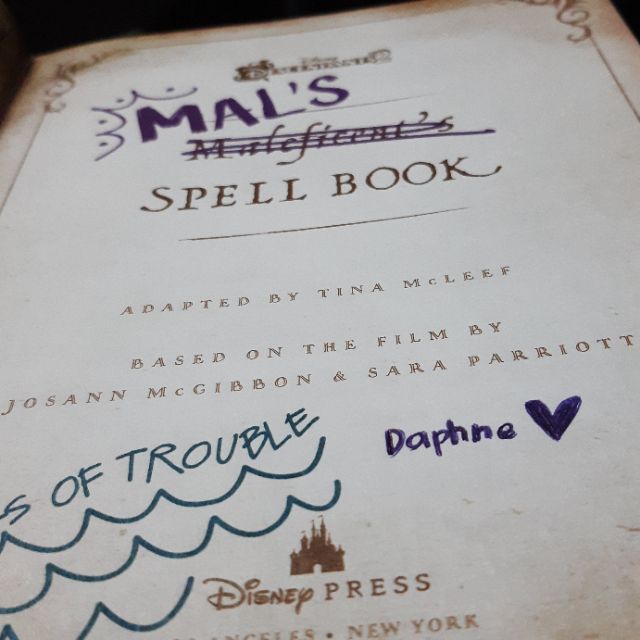 MAL'S
Maleficent's
SPELL BOOK
ADAPTED BY TINA McLEEF
BASED ON THE FILM BY
JOSANN McGIBBON & SARA PARRIOTT
OF TROUBLE
Daphne
Disney PRESS
ANGELES • NEW YORK